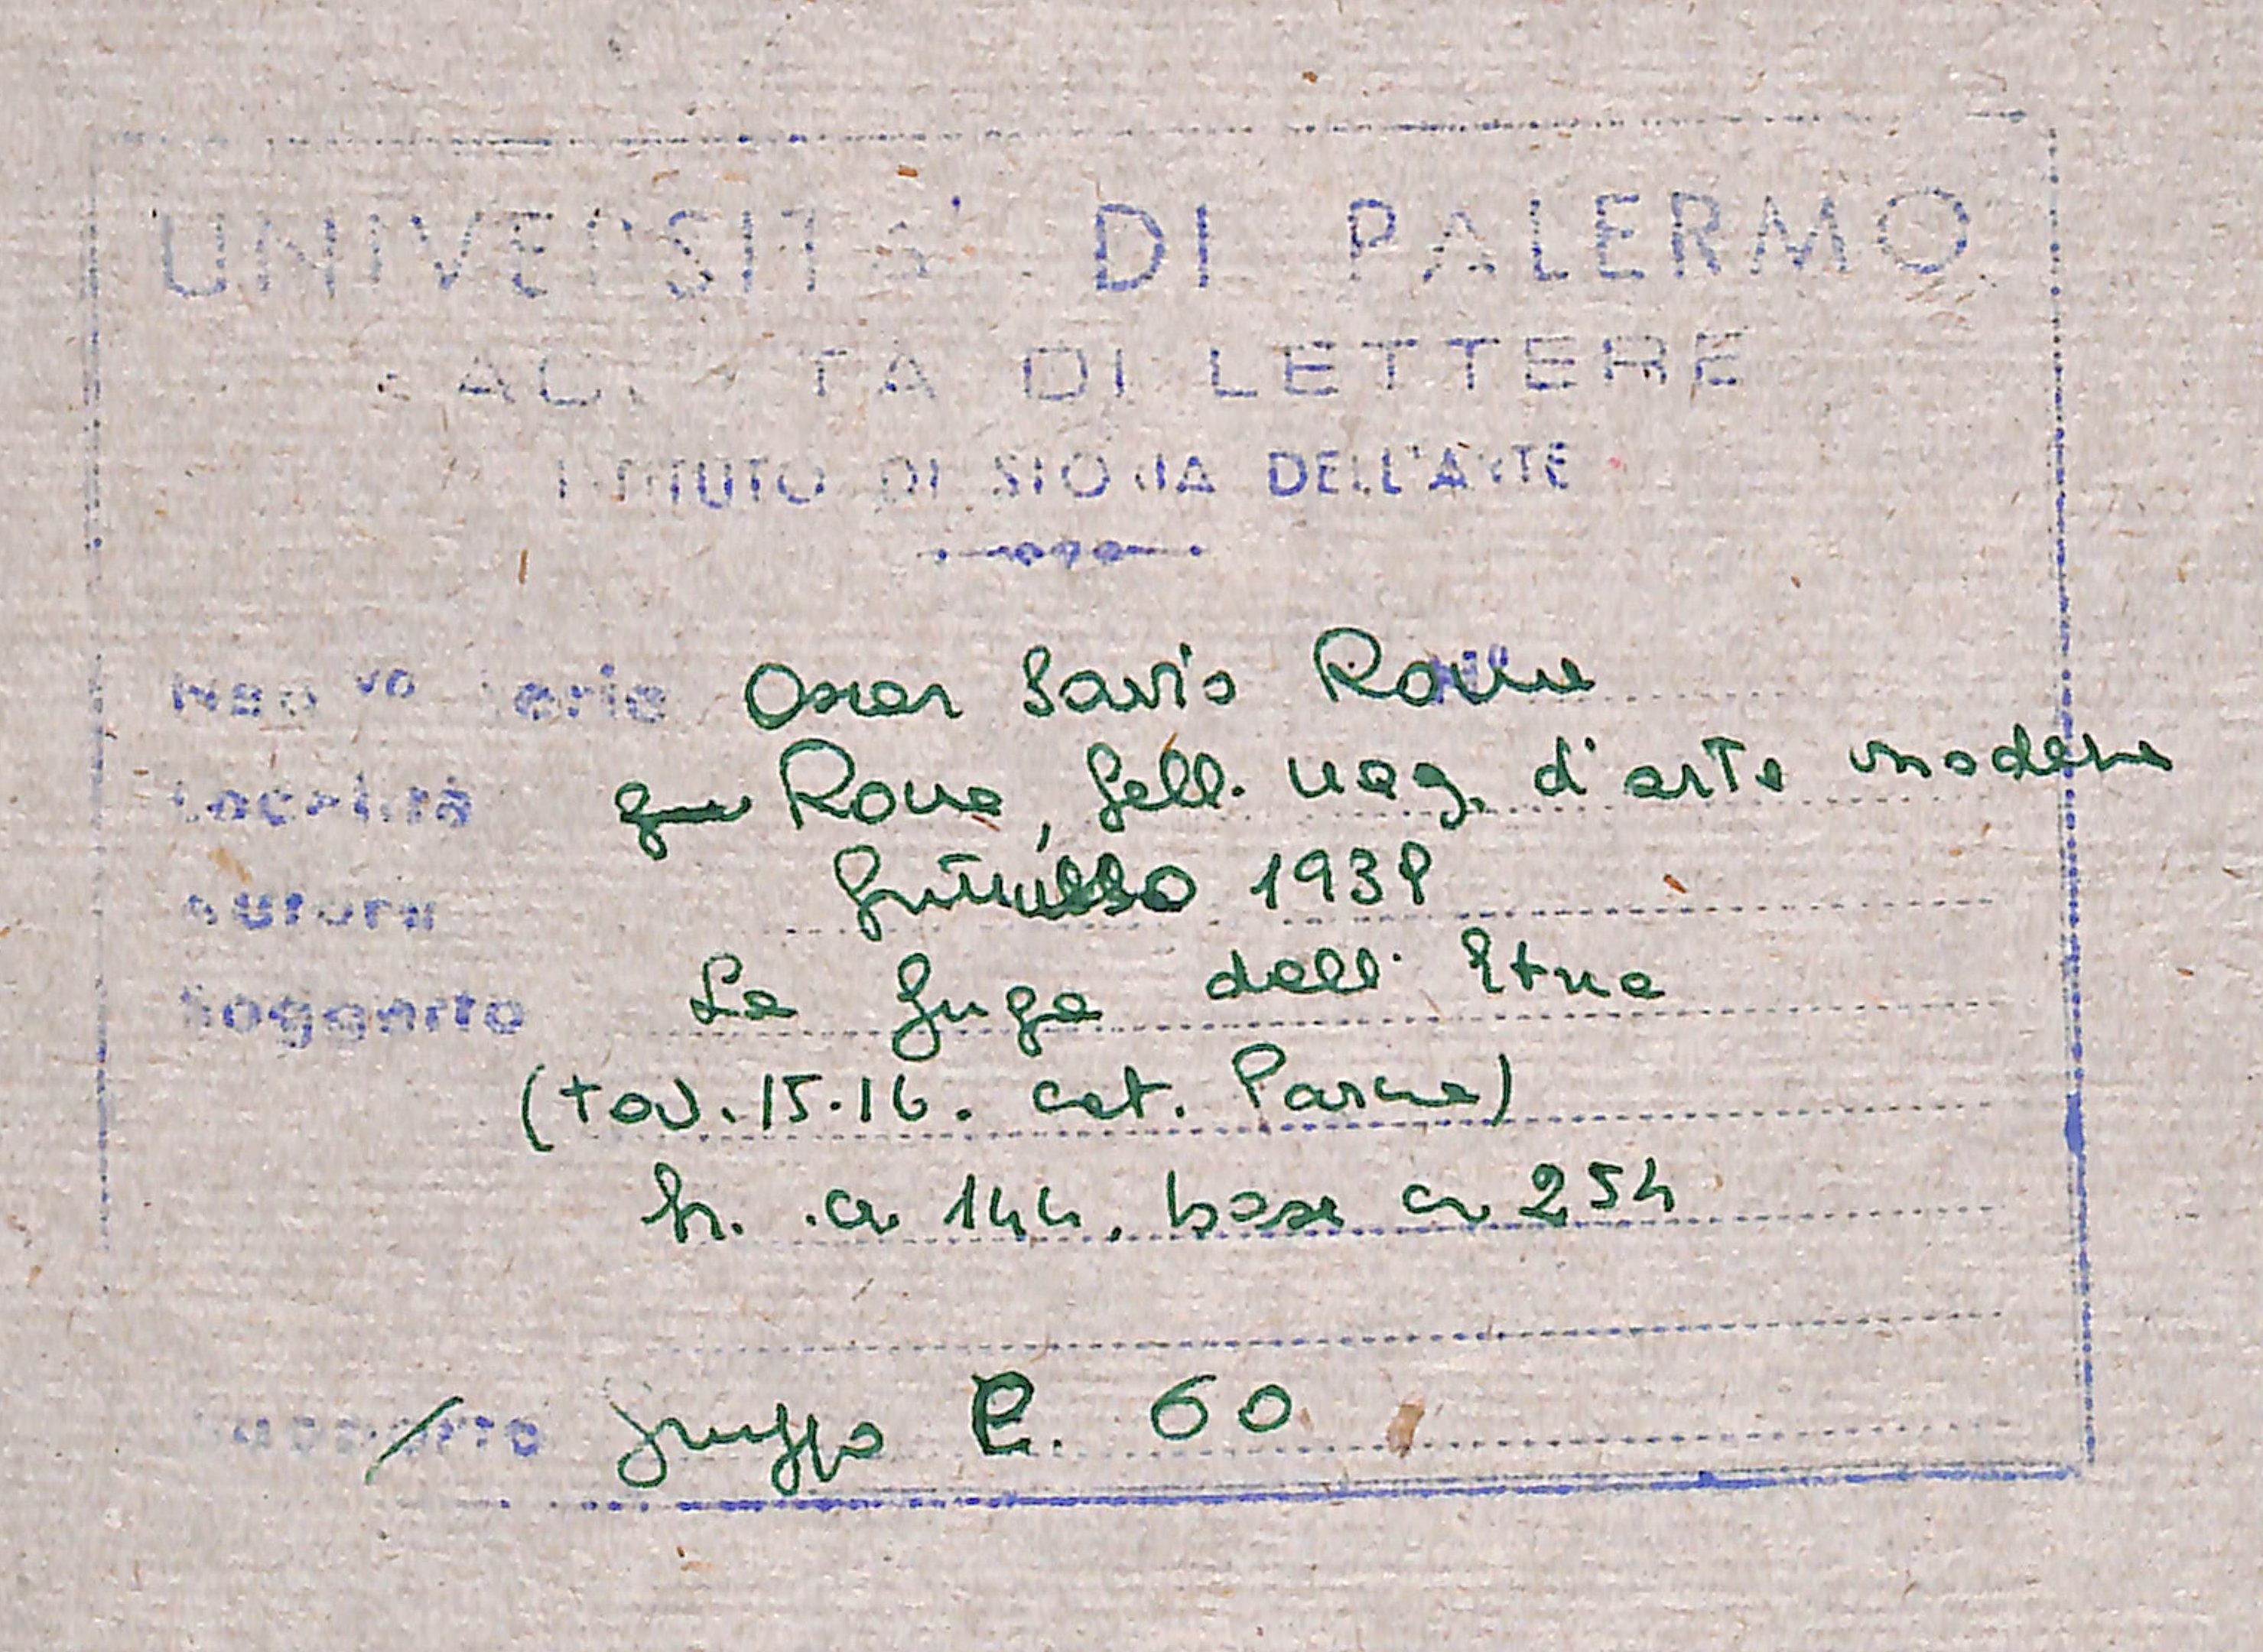 UNIVERSITA' DI PALERMO
FACOLTÀ DI LETTERE
ISTITUTO DI STORIA DELL'ARTE
Neg.vo serie Oscar Savio Roma
Località Roma, Gall. naz. d'arte moderna
Autore Guttuso 1938
Soggetto La fuga dall'Etna
(tav. 15.16. cat. Parma)
h. cm 144, base cm 254
gruppo C. 60